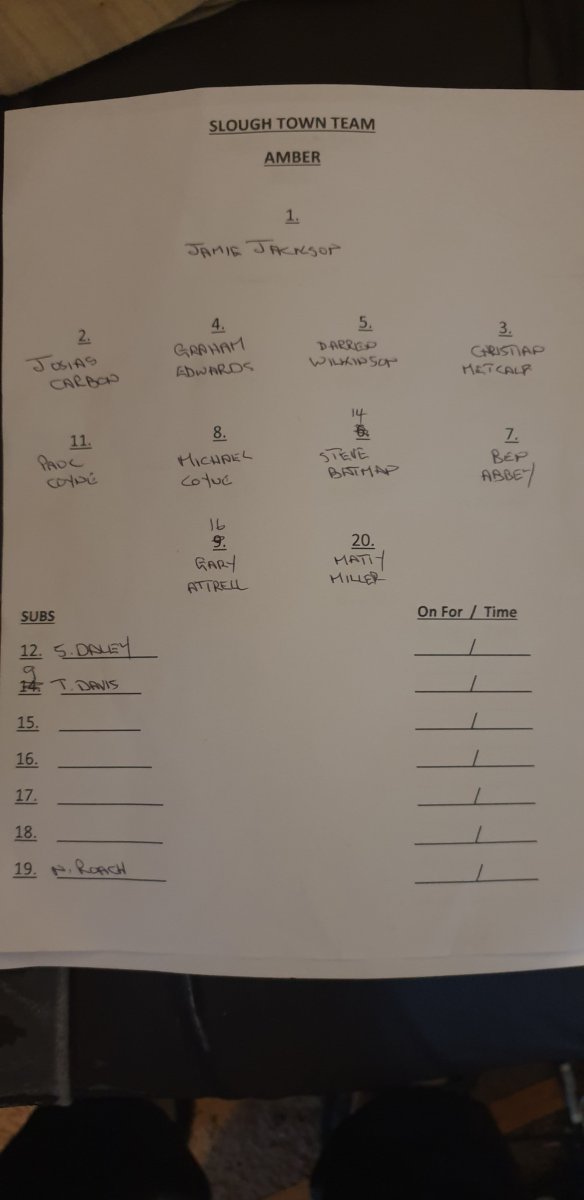 SLOUGH TOWN TEAM
AMBER
1.
JAMIE JACKSON
2.
JOSIAS
CARBON
4.
GRAHAM
EDWARDS
5.
DARREN
WILKINSON
3.
CHRISTIAN
METCALF
11.
PAUL
COYNE
8.
MICHAEL
COYNE
14
6.
STEVE
BATMAN
7.
BEN
ABBEY
16
9.
GARY
ATTRELL
20.
MATTY
MILLER
SUBS On For / Time
12. S. DALEY /
9
14. T. DAVIS /
15. /
16. /
17. /
18. /
19. N. ROACH /